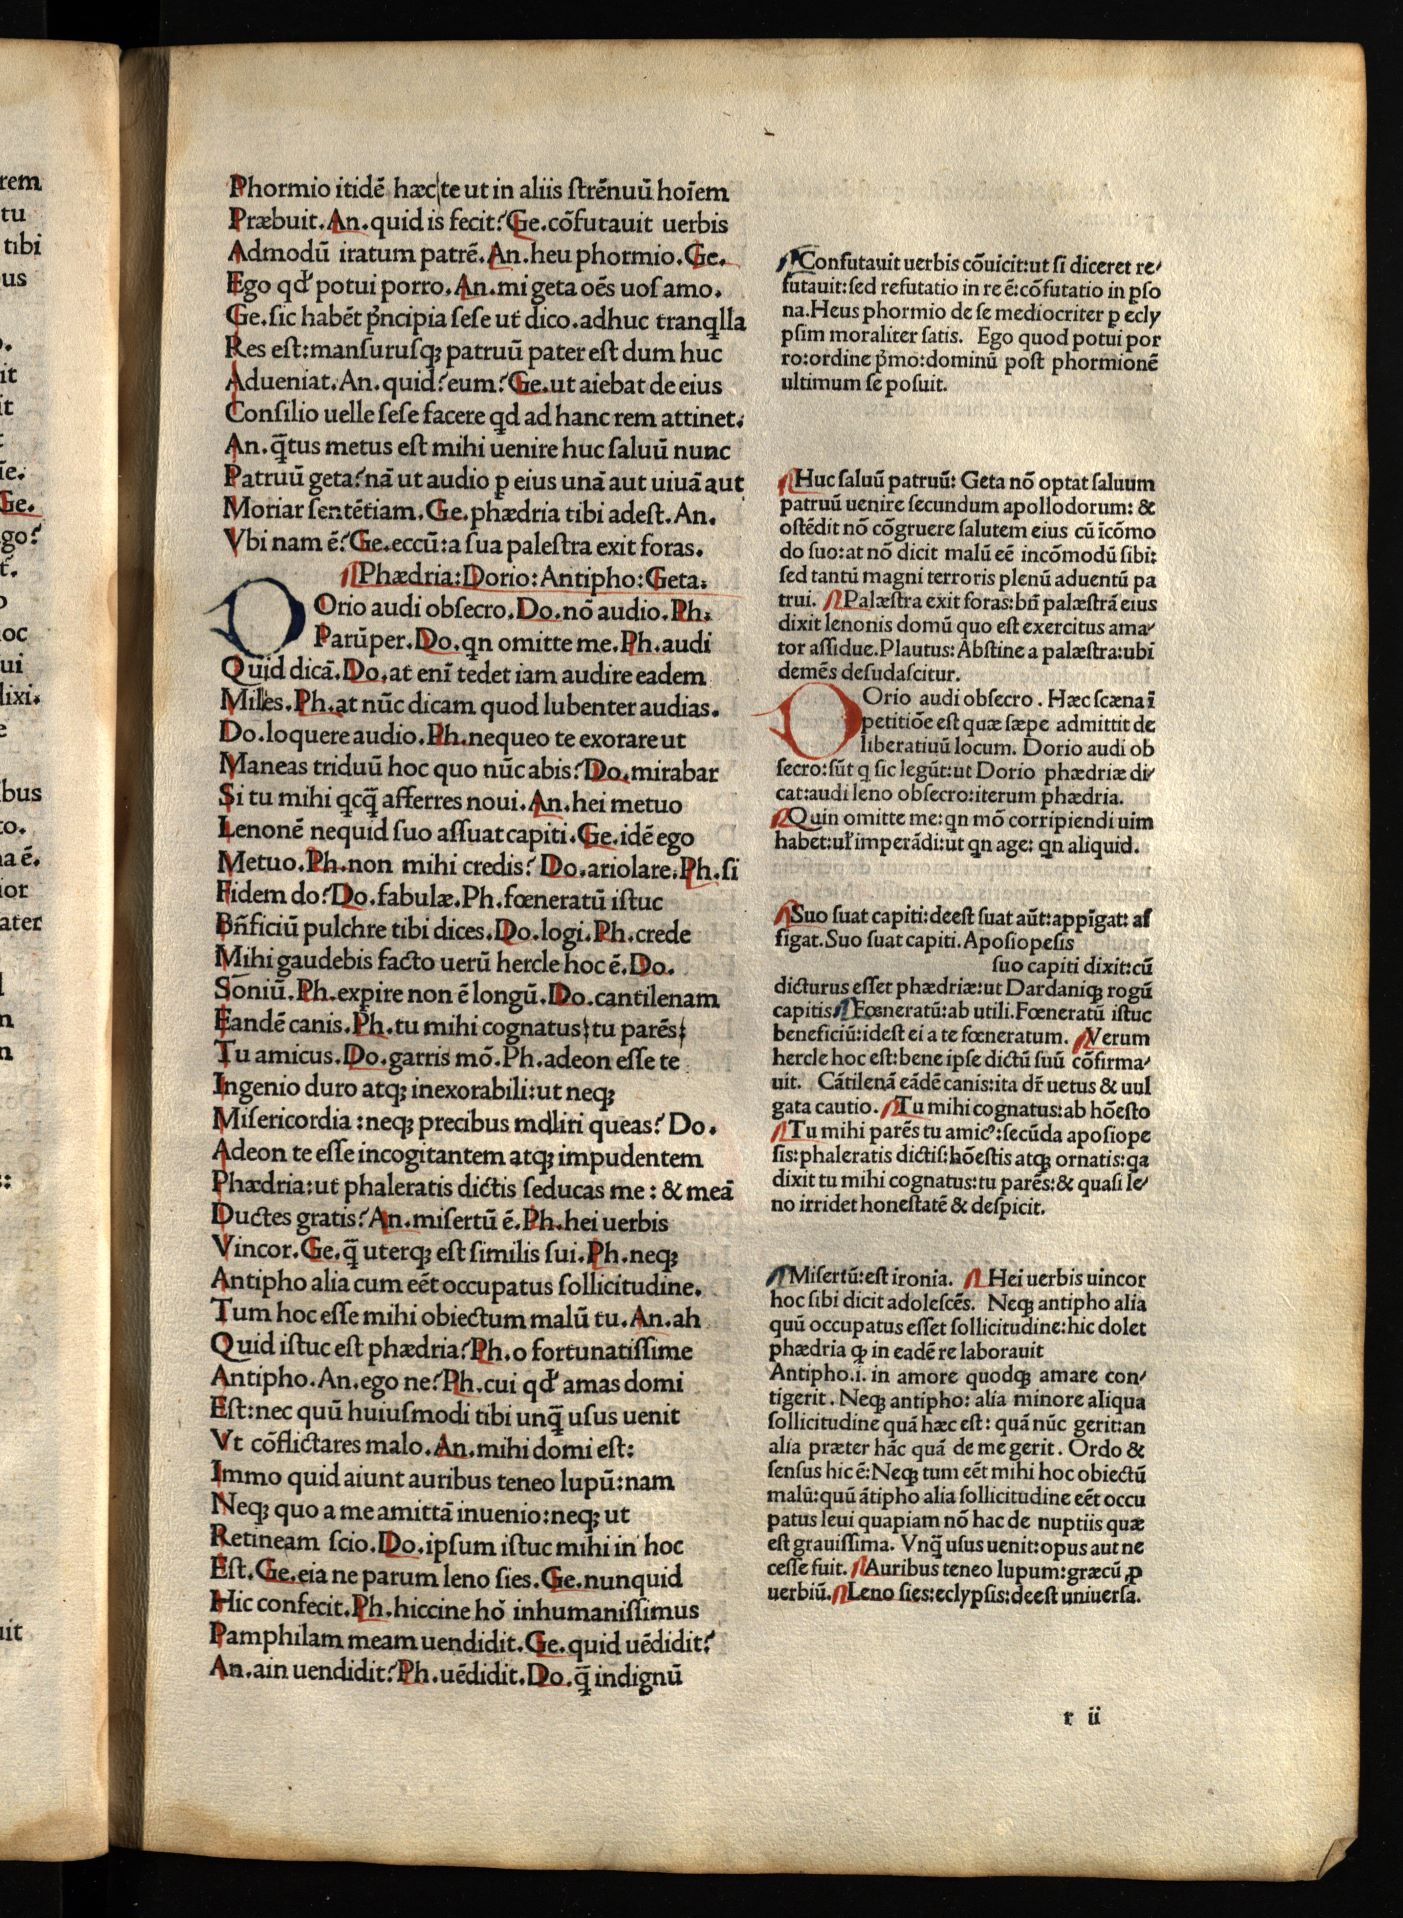 Phormio itidē hæc te ut in aliis strēnuū hoīem
Præbuit. An. quid is fecit? Ge. cōfutauit uerbis
Admodū iratum patrē. An. heu phormio. Ge.
Ego qđ potui porro. An. mi geta oēs uos amo.
Ge. sic habēt pͥncipia sese ut dico. adhuc tranqͥlla
Res est: mansurusqꝫ patruū pater est dum huc
Adueniat. An. quid? eum? Ge. ut aiebat de eius
Consilio uelle sese facere qd ad hanc rem attinet.
An. q̄tus metus est mihi uenire huc saluū nunc
Patruū geta? nā ut audio ꝑ eius unā aut uiuā aut
Moriar sentētiam. Ge. phædria tibi adest. An.
Vbi nam ē? Ge. eccū: a sua palestra exit foras.
Phædria: Dorio: Antipho: Geta.
DOrio audi obsecro. Do. nō audio. Ph.
Parūper. Do. qn omitte me. Ph. audi
Quid dicā. Do. at enī tedet iam audire eadem
Miles. Ph. at nūc dicam quod lubenter audias.
Do. loquere audio. Ph. nequeo te exorare ut
Maneas triduū hoc quo nūc abis? Do. mirabar
Si tu mihi qcq̄ afferres noui. An. hei metuo
Lenonē nequid suo assuat capiti. Ge. idē ego
Metuo. Ph. non mihi credis? Do. ariolare. Ph. si
Fidem do? Do. fabulæ. Ph. fœneratū istuc
Bn̄ficiū pulchre tibi dices. Do. logi. Ph. crede
Mihi gaudebis facto uerū hercle hoc ē. Do.
Soniū. Ph. expire non ē longū. Do. cantilenam
Eandē canis. Ph. tu mihi cognatus; tu parēs;
Tu amicus. Do. garris mō. Ph. adeon esse te
Ingenio duro atqꝫ inexorabili: ut neqꝫ
Misericordia: neqꝫ precibus molliri queas? Do.
Adeon te esse incogitantem atqꝫ impudentem
Phædria: ut phaleratis dictis seducas me: & meā
Ductes gratis? An. misertū ē. Ph. hei uerbis
Vincor. Ge. q̄ uterqꝫ est similis sui. Ph. neqꝫ
Antipho alia cum eēt occupatus sollicitudine.
Tum hoc esse mihi obiectum malū tu. An. ah
Quid istuc est phædria? Ph. o fortunatissime
Antipho. An. ego ne? Ph. cui qđ amas domi
Est: nec quū huiusmodi tibi unq̄ usus uenit
Vt cōflictares malo. An. mihi domi est:
Immo quid aiunt auribus teneo lupū: nam
Neqꝫ quo a me amittā inuenio: neqꝫ ut
Retineam scio. Do. ipsum istuc mihi in hoc
Est. Ge. eia ne parum leno sies. Ge. nunquid
Hic confecit. Ph. hiccine hō inhumanissimus
Pamphilam meam uendidit. Ge. quid uēdidit?
An. ain uendidit? Ph. uēdidit. Do. q̄ indignū
Confutauit uerbis cōuicit: ut si diceret re
futauit: sed refutatio in re ē: cōfutatio in pso
na. Heus phormio de se mediocriter p ecly
psim moraliter satis. Ego quod potui por
ro: ordine pͥmo: dominū post phormionē
ultimum se posuit.
Huc saluū patruū: Geta nō optat saluum
patruū uenire secundum apollodorum: &
ostēdit nō cōgruere salutem eius cū īcōmo
do suo: at nō dicit malū eē incōmodū sibi:
sed tantū magni terroris plenū aduentū pa
trui. Palæstra exit foras: bn̄ palæstrā eius
dixit lenonis domū quo est exercitus ama
tor assidue. Plautus: Abstine a palæstra: ubi
demēs desudascitur.
DOrio audi obsecro. Hæc scæna ī
petitiōe est quæ sæpe admittit de
liberatiuū locum. Dorio audi ob
secro: sūt q sic legūt: ut Dorio phædriæ di
cat: audi leno obsecro: iterum phædria.
Quin omitte me: qn mō corripiendi uim
habet: uł imperādi: ut qn age: qn aliquid.
Suo suat capiti: deest suat aūt: appīgat: af
figat. Suo suat capiti. Aposiopesis
suo capiti dixit: cū
dicturus esset phædriæ: ut Dardaniqꝫ rogū
capitis Fœneratū: ab utili. Fœneratū istuc
beneficiū: idest ei a te fœneratum. Verum
hercle hoc est: bene ipse dictū suū cōfirma
uit. Cātilenā eādē canis: ita dr̄ uetus & uul
gata cautio. Tu mihi cognatus: ab hōesto
Tu mihi parēs tu amicꝰ: secūda aposiope
sis: phaleratis dictis: hōestis atqꝫ ornatis: qa
dixit tu mihi cognatus: tu parēs: & quasi le
no irridet honestatē & despicit.
Misertū: est ironia. Hei uerbis uincor
hoc sibi dicit adolescēs. Neqꝫ antipho alia
quū occupatus esset sollicitudine: hic dolet
phædria qꝫ in eadē re laborauit
Antipho .i. in amore quodqꝫ amare con
tigerit. Neqꝫ antipho: alia minore aliqua
sollicitudine quā hæc est: quā nūc gerit: an
alia præter hāc quā de me gerit. Ordo &
sensus hic ē: Neqꝫ tum eēt mihi hoc obiectū
malū: quū ātipho alia sollicitudine eēt occu
patus leui quapiam nō hac de nuptiis quæ
est grauissima. Vnq̄ usus uenit: opus aut ne
cesse fuit. Auribus teneo lupum: græcū ꝓ
uerbiū. Leno sies: eclypsis: deest uniuersa.
r ii